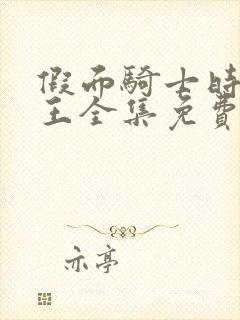 假面騎士時
王全集免費
亦亭